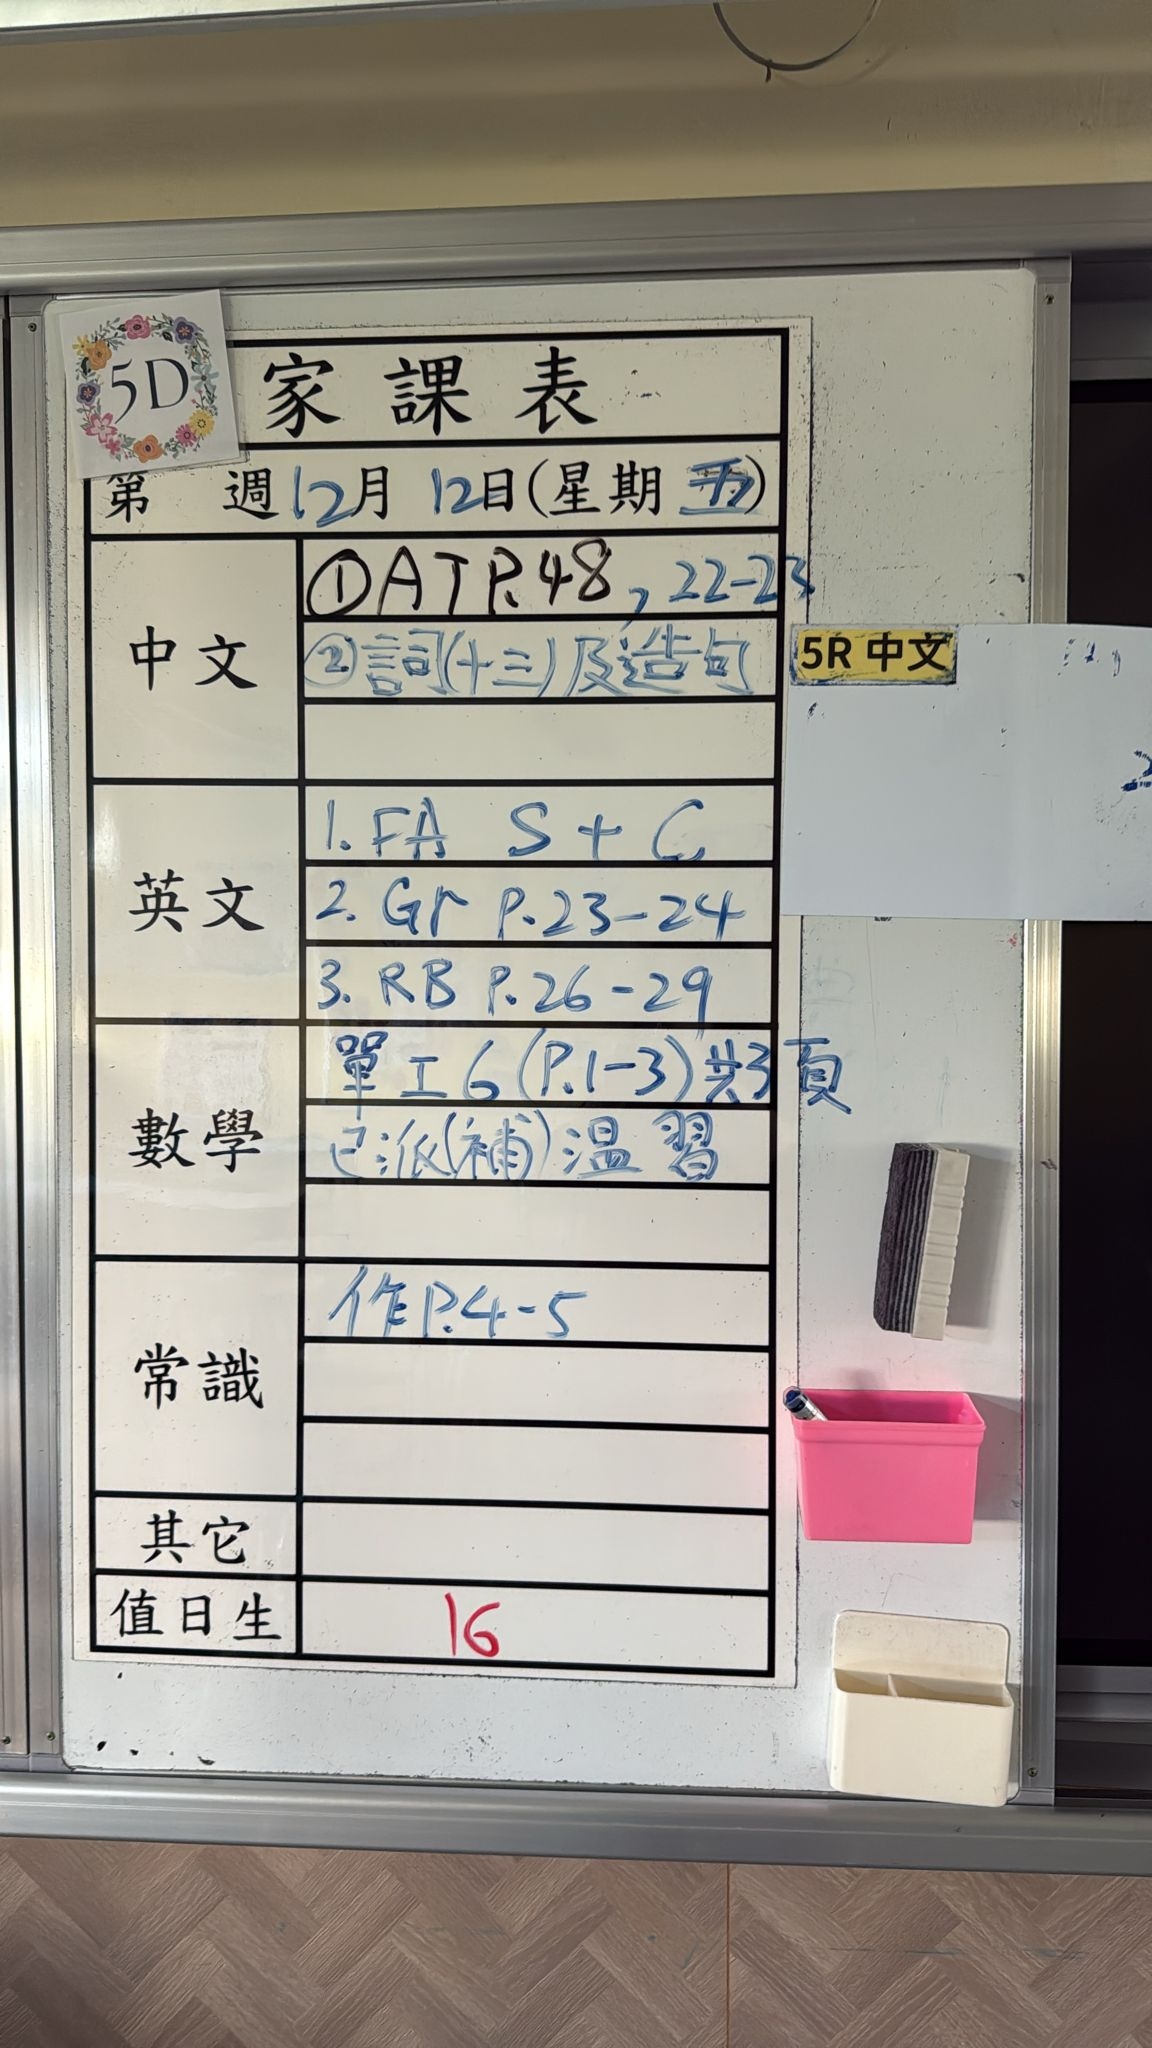 5D
家課表
第 週12月 12日(星期五)
中文
①AT P.48, 22-23
②詞(十三)及造句
5R 中文
英文
1. FA S + C
2. Gr P.23-24
3. RB P.26-29
數學
單工6(P.1-3)共3頁
已派(補)溫習
常識
作P.4-5
其它
值日生
16